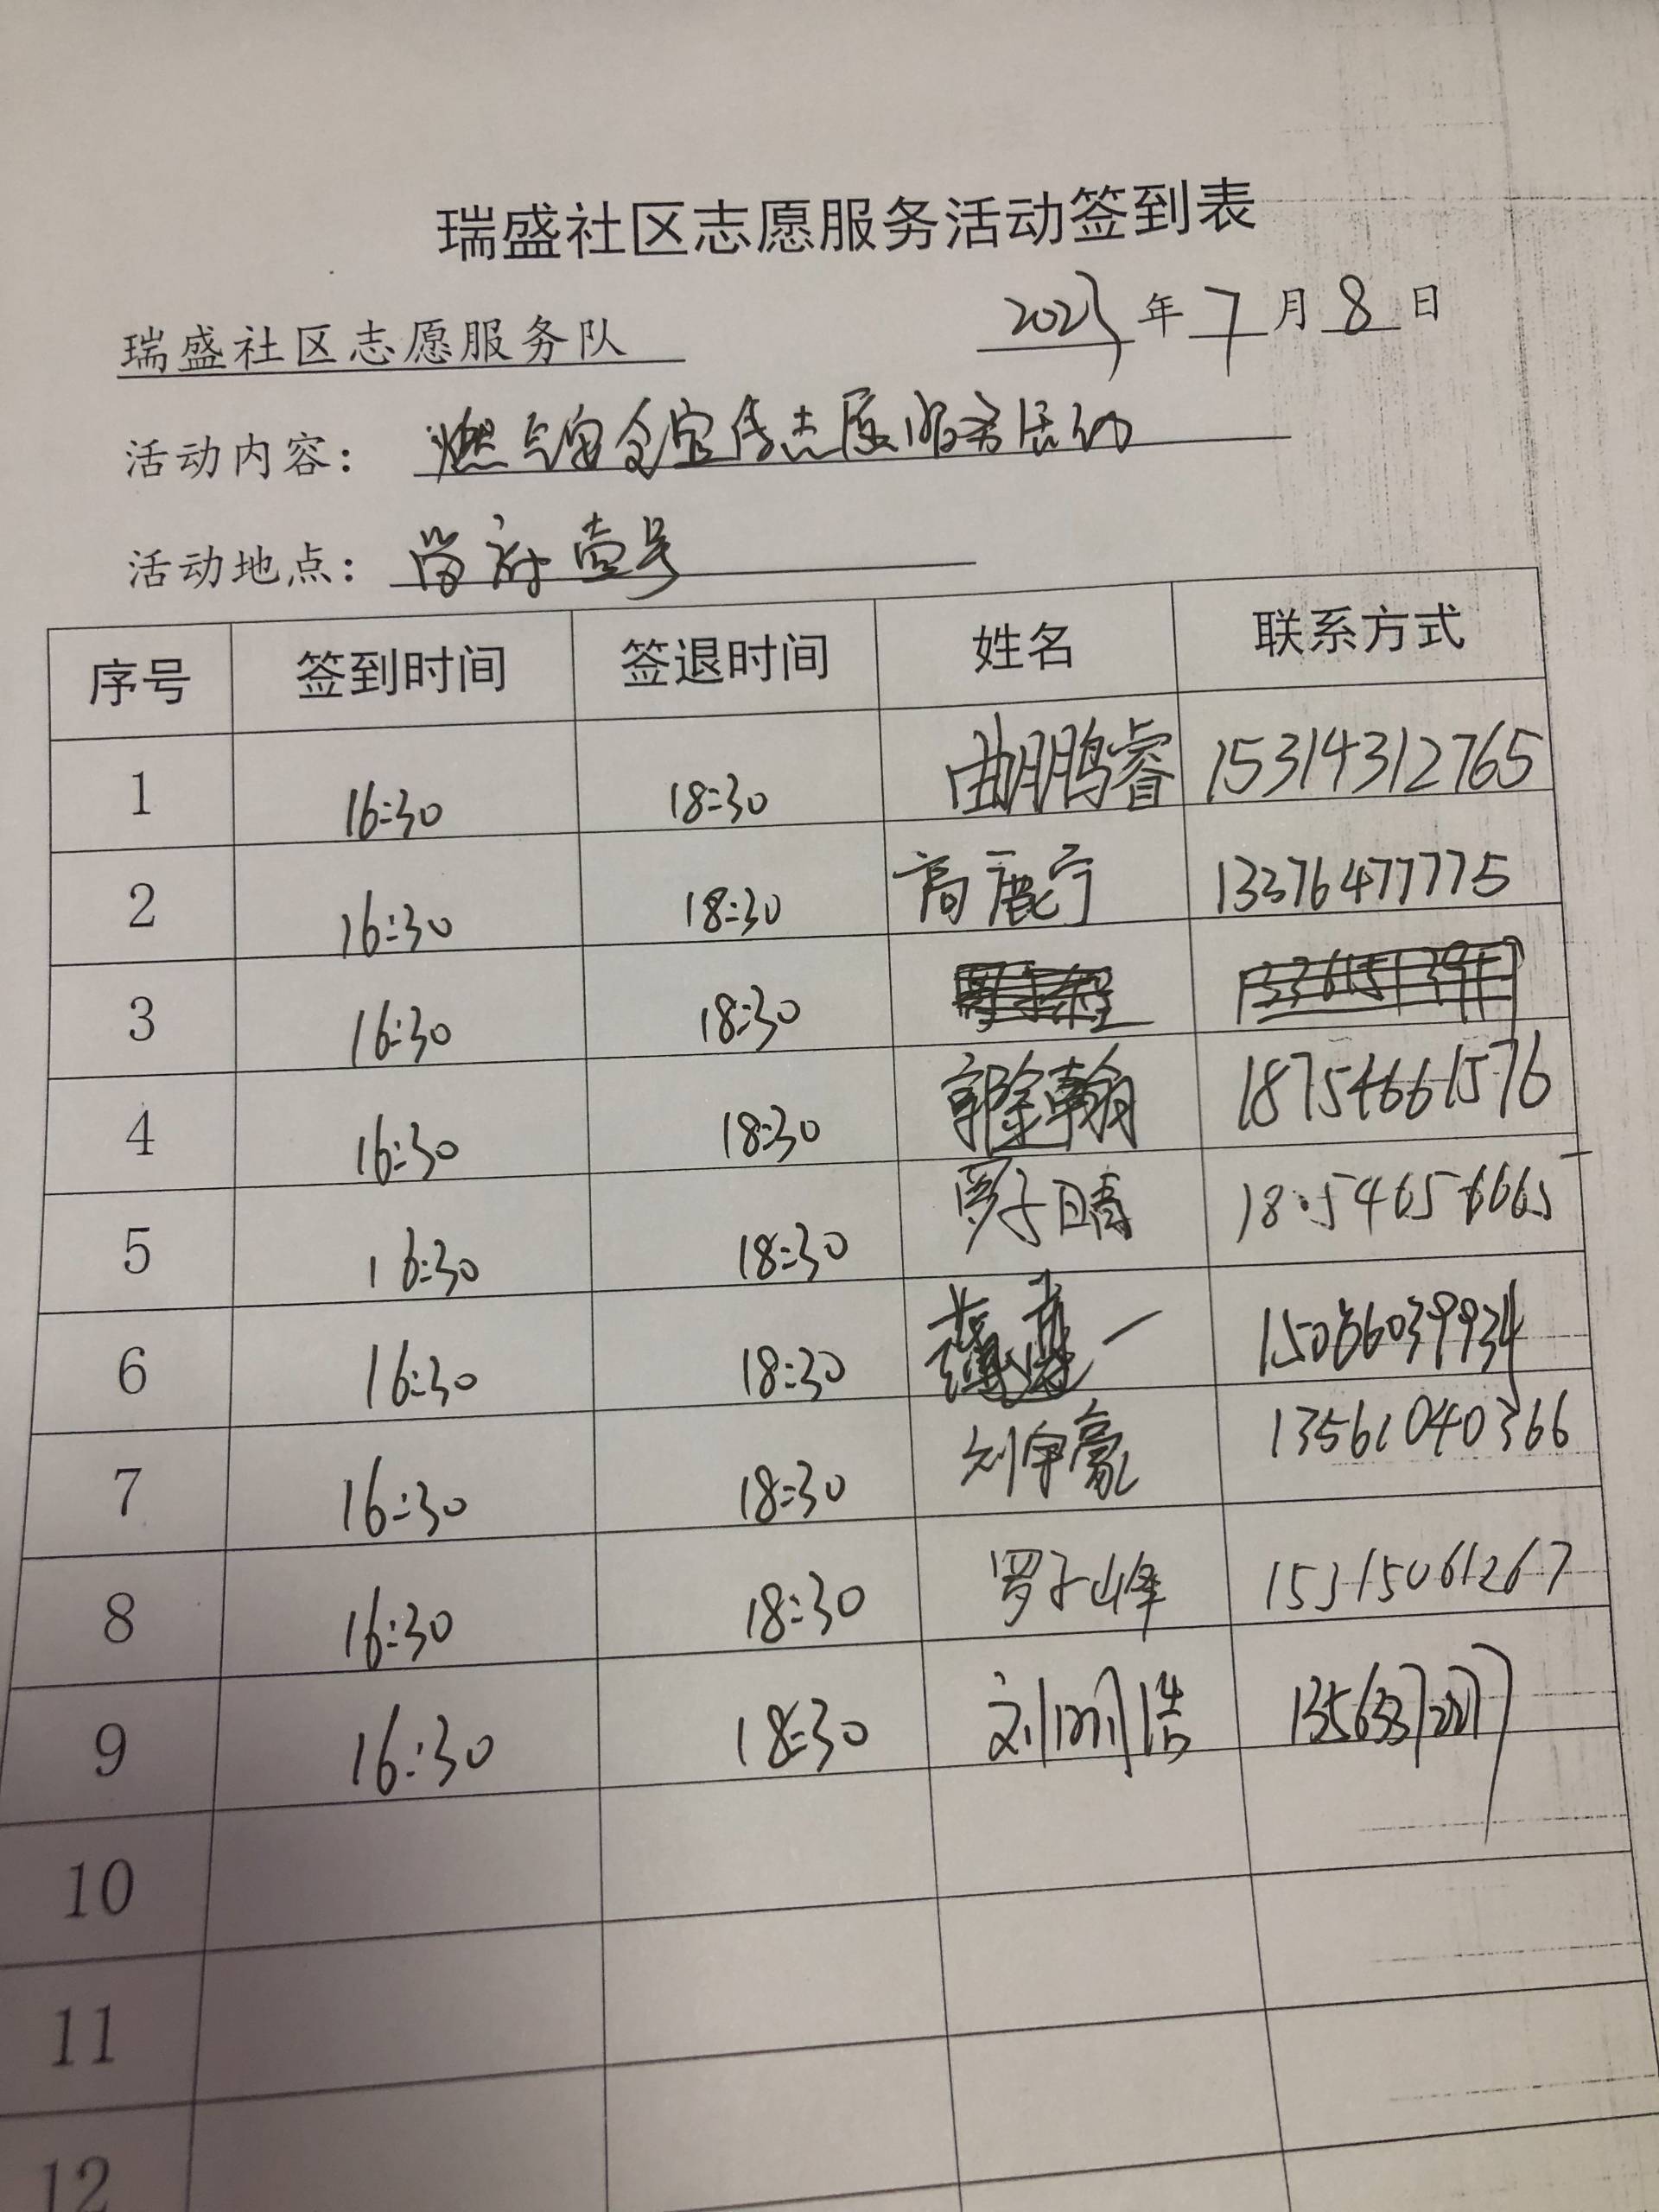 瑞盛社区志愿服务活动签到表
瑞盛社区志愿服务队 2023年7月8日
活动内容：燃气安全宣传志愿服务活动
活动地点：府壹号
序号 签到时间 签退时间 姓名 联系方式
1 16:30 18:30 曲鹏睿 15314312765
2 16:30 18:30 高鹿宁 13376477775
3 16:30 18:30
4 16:30 18:30 郭金翰 18754661576
5 16:30 18:30 贾子晴
6 16:30 18:30 15066039934
7 16:30 18:30 刘宇豪 13561040366
8 16:30 18:30 罗子峰 15315061267
9 16:30 18:30
10
11
12